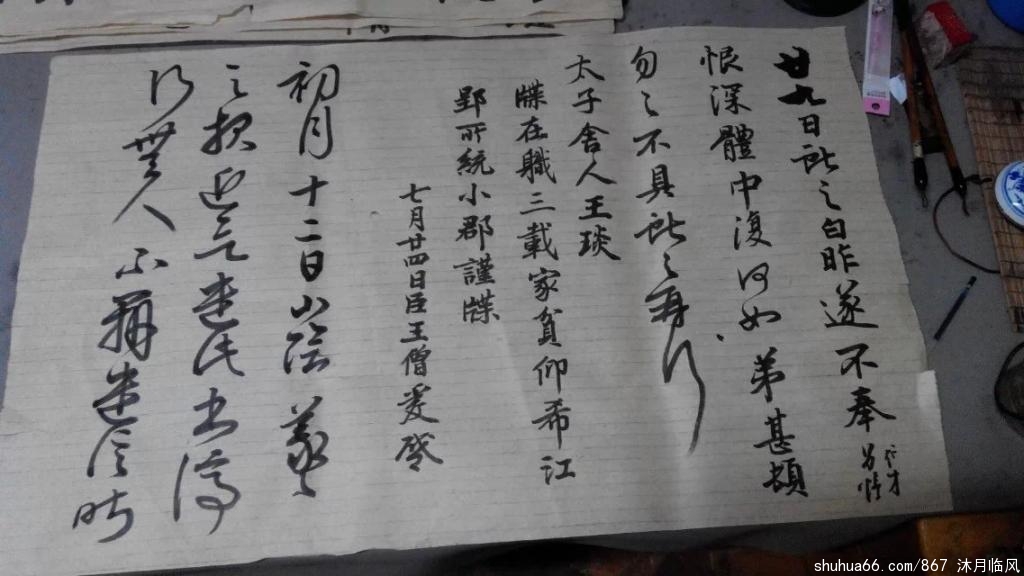 廿九日献之白昨遂不奉
恨深體中復何如弟甚頓
匆匆不具献之再拜
太子舍人王琰
牒在職三載家貧仰希江
郢所統小郡謹牒
七月廿四日臣王僧虔啓
初月十二日山陰羲
之報近欲遣此書停
行無人不辦遣信昨
shuhua66.com/867 沐月临风